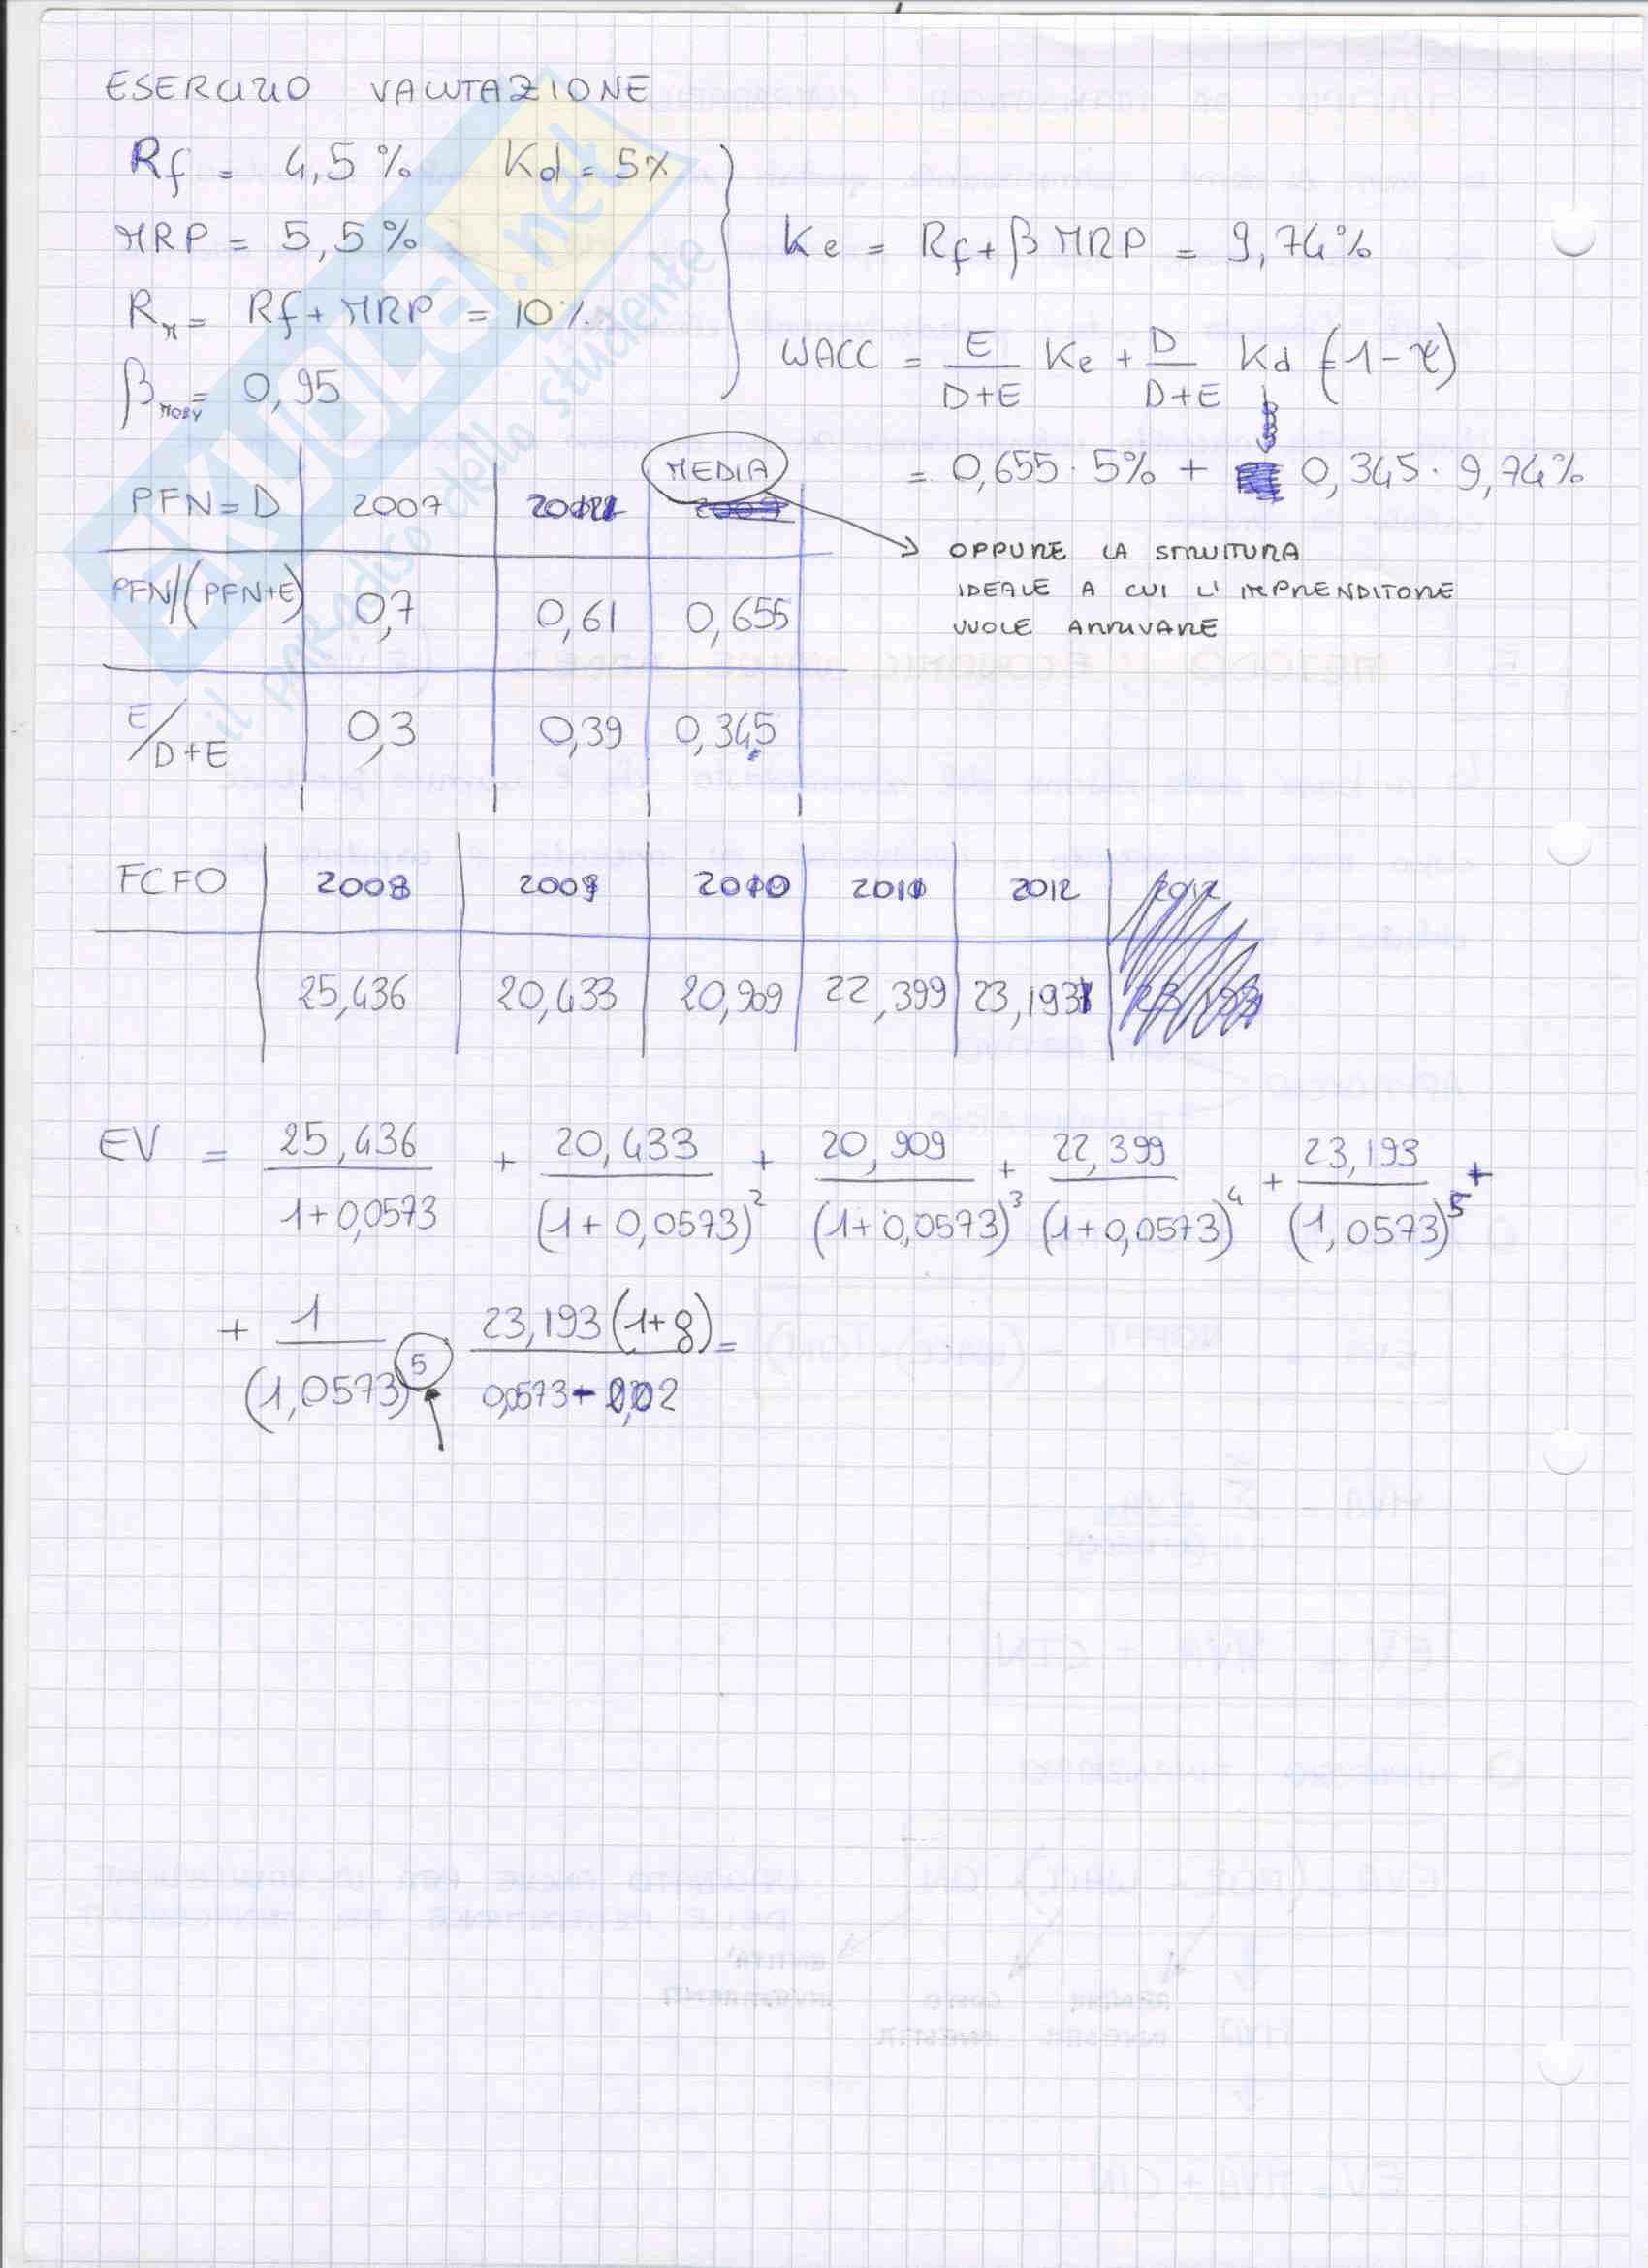 ESERCIZIO VALUTAZIONE
Rf = 4,5% Kd = 5%
MRP = 5,5%
RM = Rf + MRP = 10%
β MOBY = 0,95
Ke = Rf + β MRP = 9,74%
WACC = E/(D+E) Ke + D/(D+E) Kd (1-τ)
= 0,655 · 5% + 0,345 · 9,74%
MEDIA
PFN=D 2007 2012
PFN/(PFN+E) 0,7 0,61 0,655
E/D+E 0,3 0,39 0,345
OPPURE LA STRUTTURA
IDEALE A CUI L'IMPRENDITORE
VUOLE ARRIVARE
FCFO 2008 2009 2010 2011 2012
25,436 20,433 20,909 22,399 23,193
EV = 25,436/(1+0,0573) + 20,433/(1+0,0573)² + 20,909/(1+0,0573)³ + 22,399/(1+0,0573)⁴ + 23,193/(1,0573)⁵ +
+ 1/(1,0573)⁵ · 23,193(1+g)/(0,0573-0,02) =
SKUOLA.net
il PARAdiso dello studente